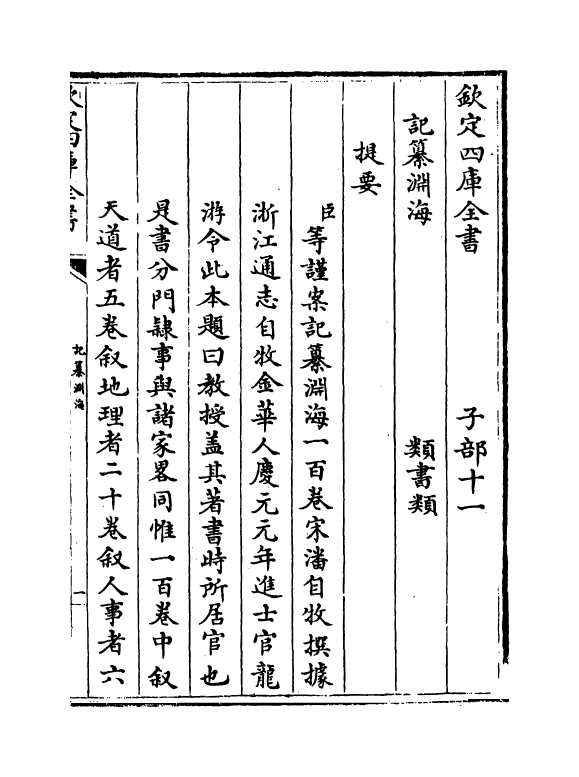 欽定四庫全書　子部十一
記纂淵海　類書類
提要
臣等謹案記纂淵海一百卷宋潘自牧撰據
浙江通志自牧金華人慶元元年進士官龍
游令此本題曰教授盖其著書時所居官也
是書分門隸事與諸家畧同惟一百卷中叙
天道者五卷叙地理者二十卷叙人事者六
欽定四庫全書
記纂淵海
一